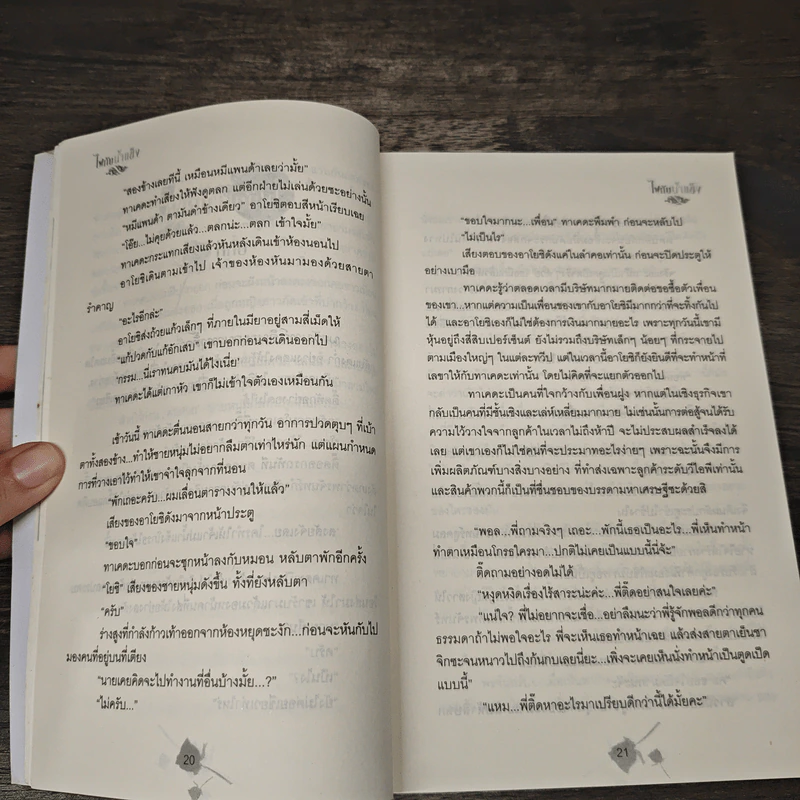 ไฟกามน้ำผึ้ง
"สองข้างเลยทีนี้ เหมือนหมีแพนด้าเลยว่ามั้ย"
ทาเคดะทำเสียงให้ฟังดูตลก แต่อีกฝ่ายไม่เล่นด้วยซะอย่างนั้น
"หมีแพนด้า ตามันดำข้างเดียว" อาโยชิตอบสีหน้าเรียบเฉย
"โอ๊ย...ไม่คุยด้วยแล้ว...ตลกน่ะ...ตลก เข้าใจมั้ย"
ทาเคดะกระแทกเสียงแล้วหันหลังเดินเข้าห้องนอนไป
อาโยชิเดินตามเข้าไป เจ้าของห้องหันมามองด้วยสายตา
รำคาญ
"อะไรอีกล่ะ"
อาโยชิส่งถ้วยแก้วเล็กๆ ที่ภายในมียาอยู่สามสี่เม็ดให้
"แก้ปวดกับแก้อักเสบ" เขาบอกก่อนจะเดินออกไป
'กรรม...นี่เราทนคบมันได้ไงเนี่ย'
ทาเคดะได้แต่เกาหัว เขาก็ไม่เข้าใจตัวเองเหมือนกัน
เช้าวันนี้ ทาเคดะตื่นนอนสายกว่าทุกวัน อาการปวดตุบๆ ที่เบ้า
ตาทั้งสองข้าง...ทำให้ชายหนุ่มไม่อยากลืมตาเท่าไหร่นัก แต่แผนกำหนด
การที่วางเอาไว้ทำให้เขาจำใจลุกจากที่นอน
"พักเถอะครับ...ผมเลื่อนตารางงานให้แล้ว"
เสียงของอาโยชิดังมาจากหน้าประตู
"ขอบใจ"
ทาเคดะบอกก่อนจะซุกหน้าลงกับหมอน หลับตาพักอีกครั้ง
"โยชิ" เสียงของชายหนุ่มดังขึ้น ทั้งที่ยังหลับตา
"ครับ"
ร่างสูงที่กำลังก้าวเท้าออกจากห้องหยุดชะงัก...ก่อนจะหันกลับไป
มองคนที่อยู่บนที่เตียง
"นายเคยคิดจะไปทำงานที่อื่นบ้างมั้ย...?"
"ไม่ครับ..."
20
"ขอบใจมากนะ...เพื่อน" ทาเคดะพึมพำ ก่อนจะหลับไป
"ไม่เป็นไร"
เสียงตอบของอาโยชิดังแค่ในลำคอเท่านั้น ก่อนจะปิดประตูให้
อย่างเบามือ
ทาเคดะรู้ว่าตลอดเวลามีบริษัทมากมายติดต่อขอซื้อตัวเพื่อน
ของเขา...หากแต่ความเป็นเพื่อนของเขากับอาโยชิมีมากกว่าที่จะทิ้งกันไป
ได้ และอาโยชิเองก็ไม่ใช่ต้องการเงินมากมายอะไร เพราะทุกวันนี้เขามี
หุ้นอยู่ถึงสี่สิบเปอร์เซ็นต์ ยังไม่รวมถึงบริษัทเล็กๆ น้อยๆ ที่กระจายไป
ตามเมืองใหญ่ๆ ในแต่ละทวีป แต่ในเวลานี้อาโยชิก็ยังยินดีที่จะทำหน้าที่
เลขาให้กับทาเคดะเท่านั้น โดยไม่คิดที่จะแยกตัวออกไป
ทาเคดะเป็นคนที่ใจกว้างกับเพื่อนฝูง หากแต่ในเชิงธุรกิจเขา
กลับเป็นคนที่มีชั้นเชิงและเล่ห์เหลี่ยมมากมาย ไม่เช่นนั้นการต่อสู้จนได้รับ
ความไว้วางใจจากลูกค้าในเวลาไม่ถึงห้าปี จะไม่ประสบผลสำเร็จลงได้
เลย แต่เขาเองก็ไม่ใช่คนที่จะประมาทอะไรง่ายๆ เพราะฉะนั้นจึงมีการ
เพิ่มผลิตภัณฑ์บางสิ่งบางอย่าง ที่ทำส่งเฉพาะลูกค้าระดับวีไอพีเท่านั้น
และสินค้าพวกนี้ก็เป็นที่ชื่นชอบของบรรดามหาเศรษฐีซะด้วยสิ
"พอล...พี่ถามจริงๆ เถอะ...พักนี้เธอเป็นอะไร...พี่เห็นทำหน้า
ทำตาเหมือนโกรธใครมา...ปกติไม่เคยเป็นแบบนี้นี่จ้ะ"
ติ๊ดถามอย่างอดไม่ได้
"หงุดหงิดเรื่องไร้สาระน่ะค่ะ...พี่ติ๊ดอย่าสนใจเลยค่ะ"
"แน่ใจ? พี่ไม่อยากจะเชื่อ...อย่าลืมนะว่าพี่รู้จักพอลดีกว่าทุกคน
ธรรมดาถ้าไม่พอใจอะไร พี่จะเห็นเธอทำหน้าเฉย แล้วส่งสายตาเย็นชา
จิกซะจนหนาวไปถึงก้นกบเลยนี่ยะ...เพิ่งจะเคยเห็นนั่งทำหน้าเป็นตูดเป็ด
แบบนี้"
"แหม...พี่ติ๊ดหาอะไรมาเปรียบดีกว่านี้ได้มั้ยคะ"
21